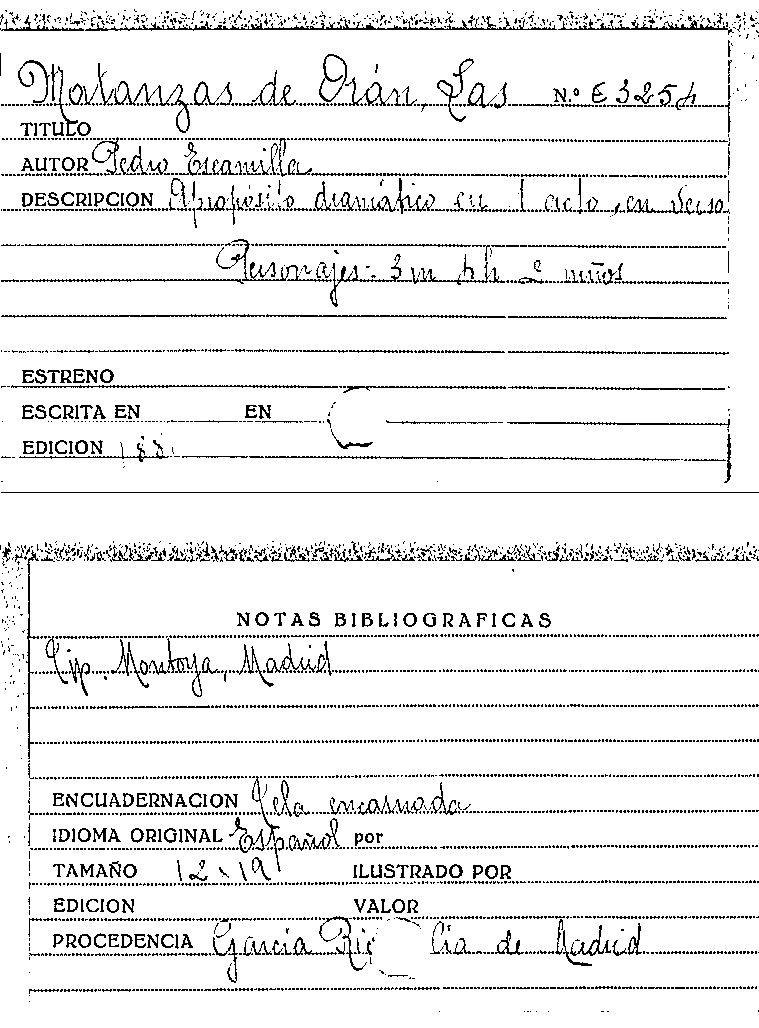 Matanzas de Orán, Las N.º E 3254
TITULO
AUTOR Pedro Escamilla
DESCRIPCION Apropósito dramático en 1 acto, en verso
Personajes: 3 m 4 h 2 niños
ESTRENO
ESCRITA EN EN
EDICION
NOTAS BIBLIOGRAFICAS
Tip. Montoya, Madrid
ENCUADERNACION Tela encarnada
IDIOMA ORIGINAL Español por
TAMAÑO 12 x 19 ILUSTRADO POR
EDICION VALOR
PROCEDENCIA García de Madrid